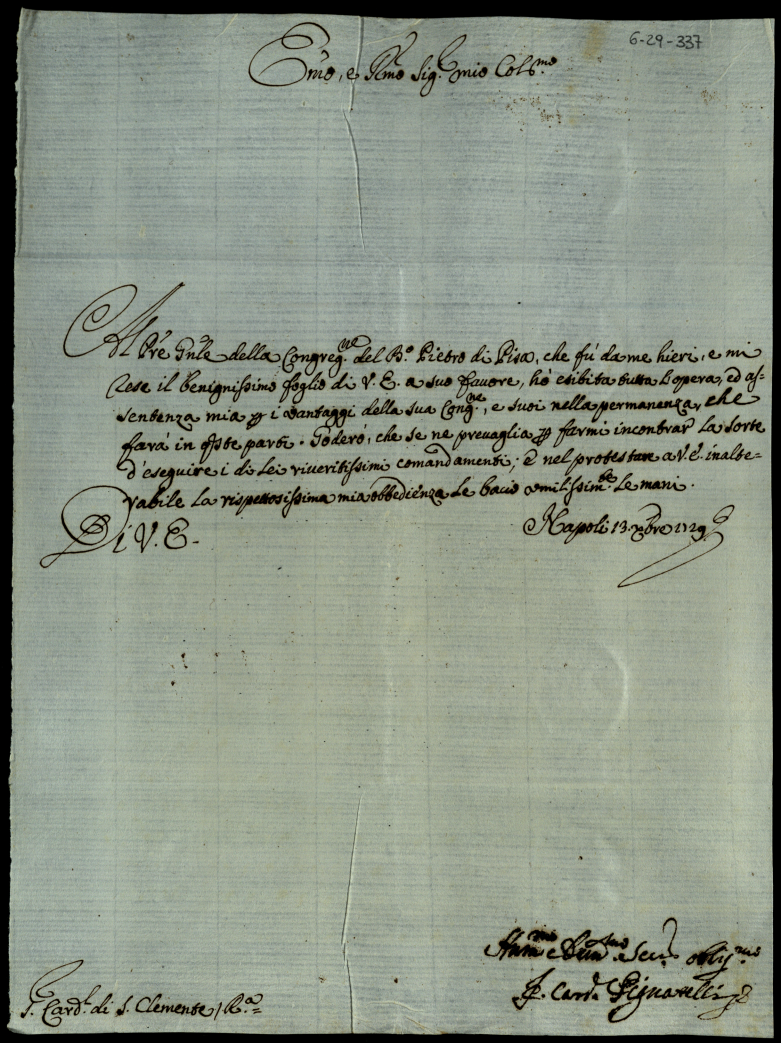 6-29-337
Emo, e Rmo Sig.r mio Colmo
Al Pre Gnle della Congreg.ne del B.o Pietro di Pisa, che fù da me hieri, e mi
rese il benignissimo foglio di V. E. a suo favore, hò esibita tutta l'opera, ed as-
sentenza mia p i vantaggi della sua Cong.ne, e suoi nella permanenza, che
farà in queste parti. Goderò, che se ne prevaglia p farmi incontrar la sorte
d'eseguire i di Lei riveritissimi comandamenti; e nel protestare a V. E. inalte-
rabile la rispettosissima mia obbedienza Le bacio umilissim.te le mani.
Di V. E.
Napoli 13. Xbre 1729
Hum.mo e Div.mo Ser. obblig.mo
F. Card. Pignatelli
S. Card.l di S. Clemente / R.a =